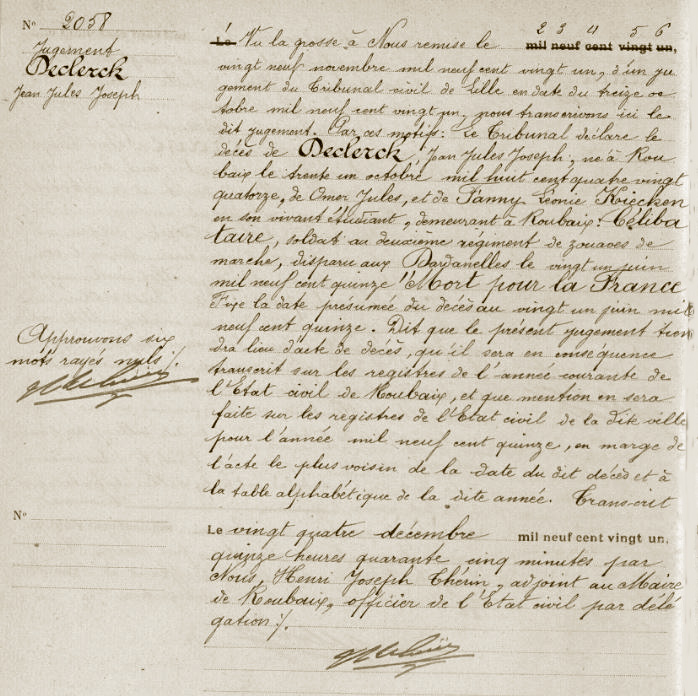 N° 2058
Jugement
Declerck
Jean Jules Joseph
2 3 4 5 6
Le Vu la grosse à Nous remise le mil neuf cent vingt un,
vingt neuf novembre mil neuf cent vingt un, d'un ju
gement du Tribunal civil de Lille en date du treize oc
tobre mil neuf cent vingt un, nous transcrivons ici le
dit jugement. Par ces motifs: Le Tribunal déclare le
décès de Declerck, Jean Jules Joseph, né à Rou
baix le trente un octobre mil huit cent quatre vingt
quatorze, de Omer Jules, et de Fanny Léonie Kiecken
en son vivant étudiant, demeurant à Roubaix: Céliba
taire, soldat au deuxième régiment de zouaves de
marche, disparu aux Dardanelles le vingt un juin
mil neuf cent quinze "Mort pour la France
Fixe la date présumée du décès au vingt un juin mil
neuf cent quinze. Dit que le présent jugement tien
dra lieu d'acte de décès, qu'il sera en conséquence
transcrit sur les registres de l'année courante de
l'Etat civil de Roubaix, et que mention en sera
faite sur les registres de l'Etat civil de la dite ville
pour l'année mil neuf cent quinze, en marge de
l'acte le plus voisin de la date du dit décès et à
la table alphabétique de la dite année. Transcrit
Approuvons six
mots rayés nuls ./.
N°
Le vingt quatre décembre mil neuf cent vingt un,
quinze heures quarante cinq minutes par
Nous, Henri Joseph Thérin, adjoint au Maire
de Roubaix, officier de l'Etat civil par délé
gation ./.